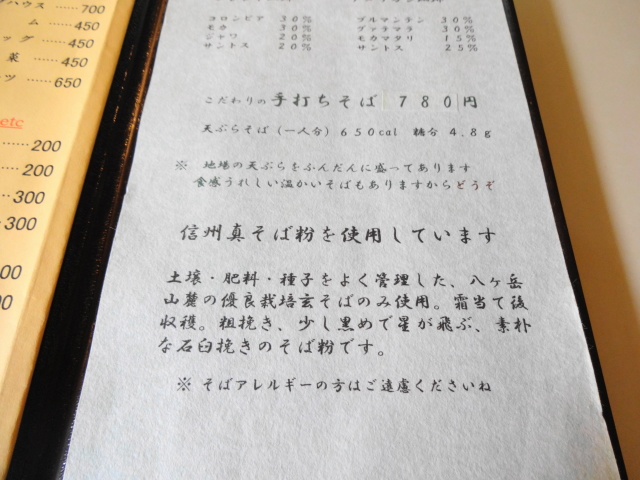 ハウス ……700
ム ……450
ッグ ……450
菜 ……450
ツ ……650
etc
……200
……200
……300
……300
コロンビア 30%
モカ 30%
ジャワ 20%
サントス 20%
ブルマンテン 30%
グァテマラ 30%
モカマタリ 15%
サントス 25%
こだわりの手打ちそば 780円
天ぷらそば(一人分)650cal 糖分 4.8g
※ 地場の天ぷらをふんだんに盛ってあります
食感うれしい温かいそばもありますからどうぞ
信州真そば粉を使用しています
土壌・肥料・種子をよく管理した、八ヶ岳
山麓の優良栽培玄そばのみ使用。霜当て後
収穫。粗挽き、少し黒めで星が飛ぶ、素朴
な石臼挽きのそば粉です。
※ そばアレルギーの方はご遠慮くださいね